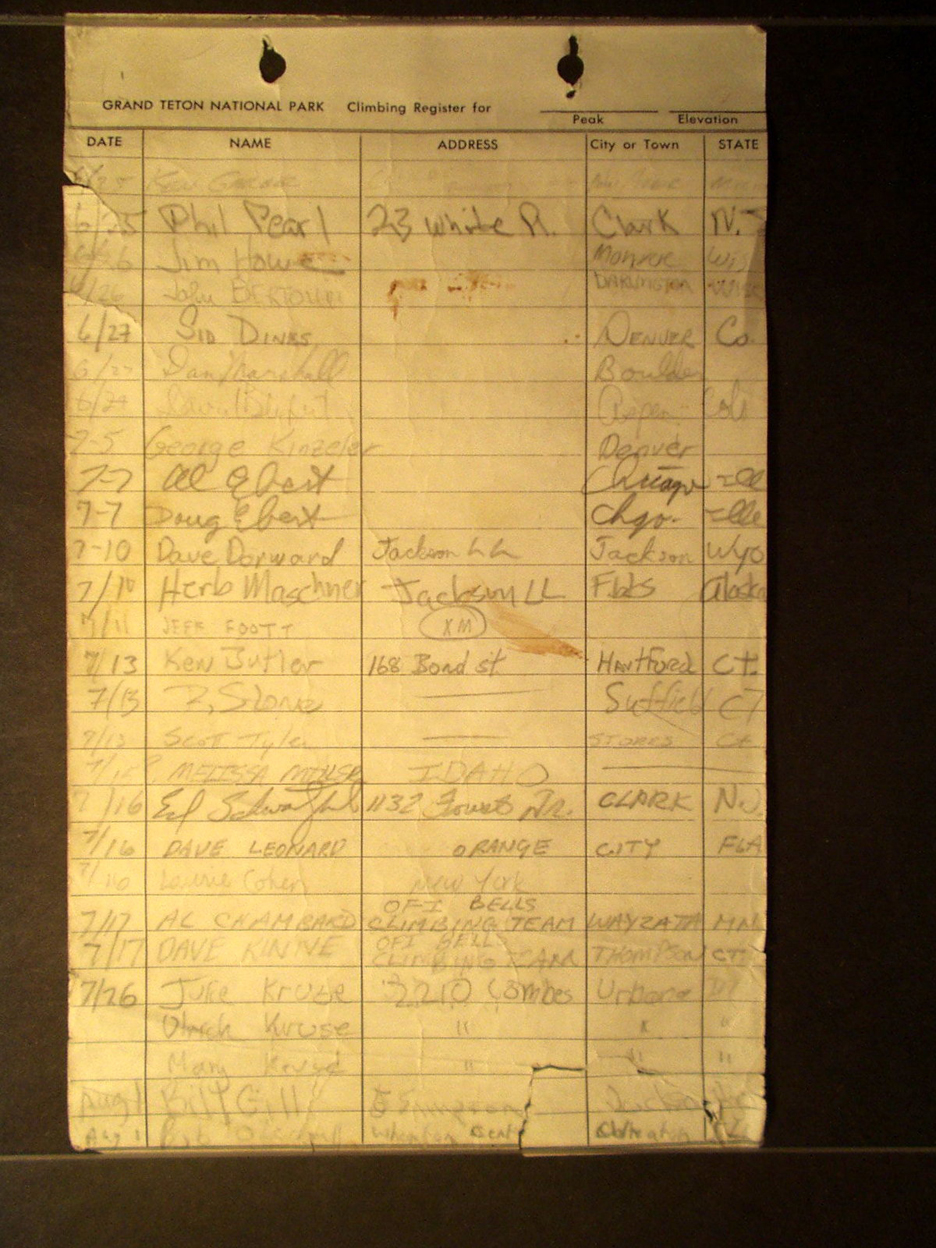 GRAND TETON NATIONAL PARK Climbing Register for
Peak Elevation
DATE NAME ADDRESS City or Town STATE
6/25 Phil Pearl 23 White R. Clark N.J
Jim Howe Monroe Wis
6/26 John DARLINGTON
6/27 SID DINES DENVER Co.
6/27 Dan Marshall Boulder
6/27 Aspen Colo
7-5 George Kinzeler Denver
7-7 Al Ebert Chicago Ill
7-7 Doug Ebert Chgo. Ill
7-10 Dave Dorward Jackson L L Jackson Wyo
7/10 Herb Maschner Jackson LL Flats Alaska
7/11 JEFF FOOTT XM
7/13 Ken Butler 168 Bond st HARTFORD CT.
7/13 Stone Suffield CT
7/13 Scott Tyler STORRS Ct
7/15? MELISSA IDAHO
7/16 Ed 1132 Forest Dr. CLARK N.J.
7/16 DAVE LEONARD ORANGE CITY FLA
7/16 Laurie Cohen New York
OFI BELLS
7/17 AL CHAMBARD CLIMBING TEAM WAYZATA MN
OFI BELLS
7/17 DAVE KINNE CLIMBING TEAM THOMPSON CT
7/26 Julie Kruse 2210 Combes Urbana
Ulrich Kruse " " "
Mary " " "
Aug 1 Bill Gill Simpson
Aug 1 Bob Wheaton Wheaton